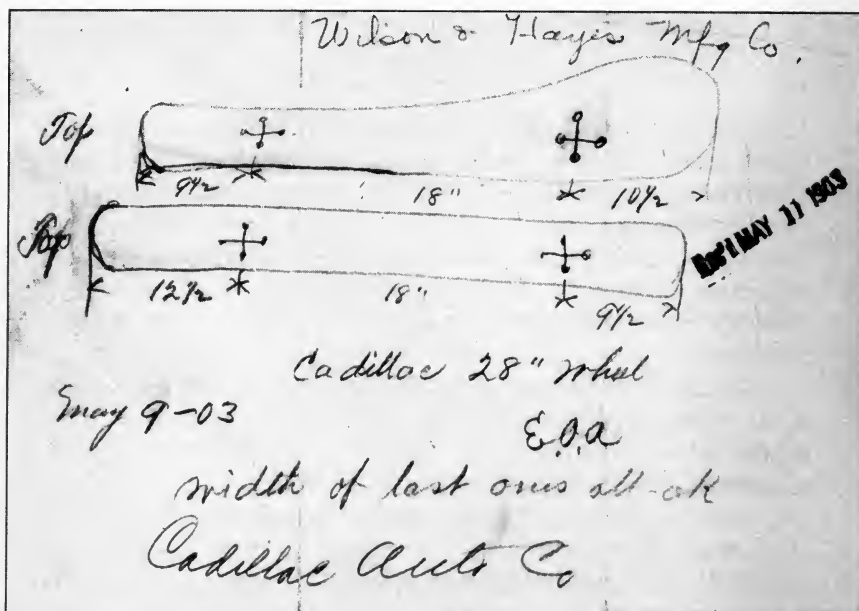 Wilson & Hayes Mfg Co.
Top
9 1/2 18" 10 1/2
Top
12 1/2 18" 9 1/2
Rec'd MAY 11 1903
Cadillac 28" Wheel
May 9-03
E.O.A
width of last ones all ok
Cadillac Auto Co